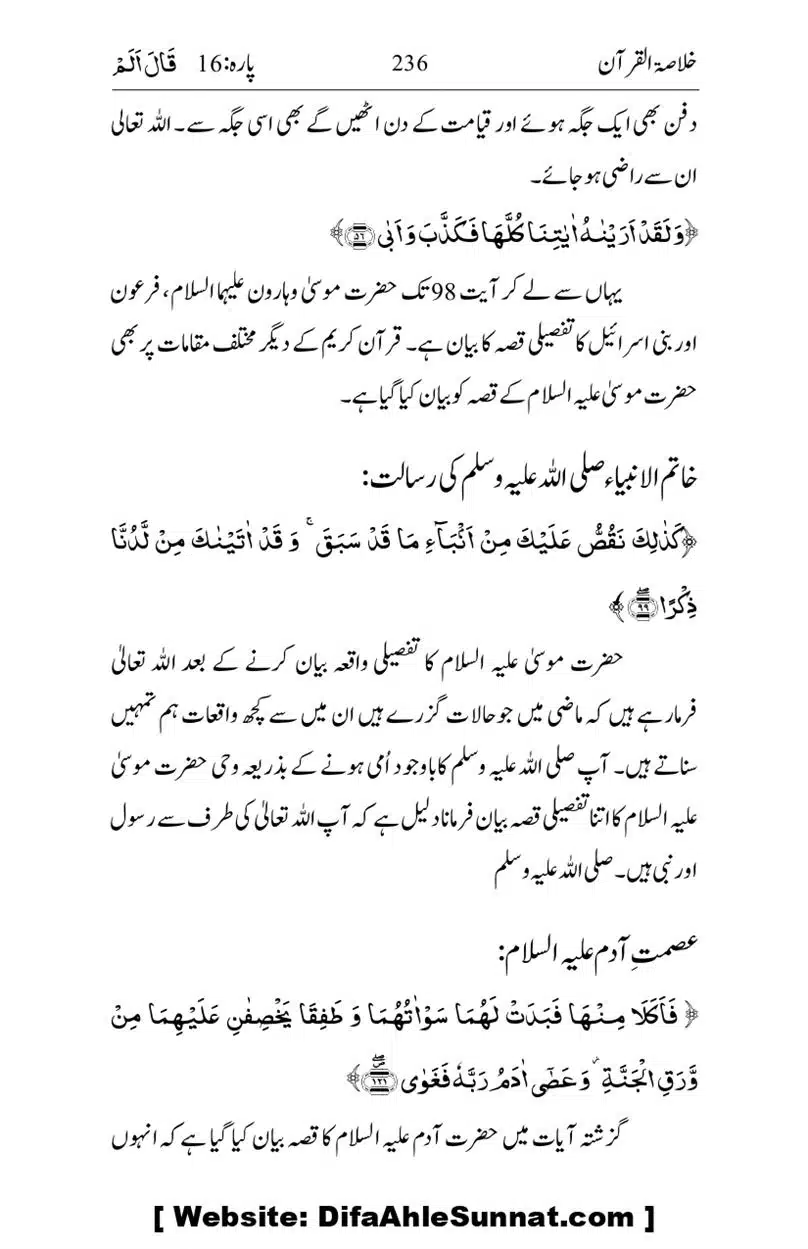 خلاصۃ القرآن 236 پارہ:16 قَالَ اَلَمۡ
دفن بھی ایک جگہ ہوئے اور قیامت کے دن اٹھیں گے بھی اسی جگہ سے۔ اللہ تعالیٰ
ان سے راضی ہو جائے۔
﴿وَلَقَدۡ اَرَیۡنٰہُ اٰیٰتِنَا کُلَّہَا فَکَذَّبَ وَاَبٰی ﴿۵۶﴾﴾
یہاں سے لے کر آیت 98 تک حضرت موسیٰ وہارون علیہما السلام، فرعون
اور بنی اسرائیل کا تفصیلی قصہ کا بیان ہے۔ قرآن کریم کے دیگر مختلف مقامات پر بھی
حضرت موسیٰ علیہ السلام کے قصہ کو بیان کیا گیا ہے۔
خاتم الانبیاء صلی اللہ علیہ وسلم کی رسالت:
﴿کَذٰلِکَ نَقُصُّ عَلَیۡکَ مِنۡ اَنۡۢبَآءِ مَا قَدۡ سَبَقَ ۚ وَ قَدۡ اٰتَیۡنٰکَ مِنۡ لَّدُنَّا
ذِکۡرًا ﴿ۖ۹۹﴾﴾
حضرت موسیٰ علیہ السلام کا تفصیلی واقعہ بیان کرنے کے بعد اللہ تعالیٰ
فرمارہے ہیں کہ ماضی میں جو حالات گزرے ہیں ان میں سے کچھ واقعات ہم تمہیں
سناتے ہیں۔ آپ صلی اللہ علیہ وسلم کا باوجود اُمی ہونے کے بذریعہ وحی حضرت موسیٰ
علیہ السلام کا اتنا تفصیلی قصہ بیان فرمانا دلیل ہے کہ آپ اللہ تعالیٰ کی طرف سے رسول
اور نبی ہیں۔ صلی اللہ علیہ وسلم
عصمتِ آدم علیہ السلام:
﴿فَاَکَلَا مِنۡہَا فَبَدَتۡ لَہُمَا سَوۡاٰتُہُمَا وَ طَفِقَا یَخۡصِفٰنِ عَلَیۡہِمَا مِنۡ
وَّرَقِ الۡجَنَّۃِ ۫ وَ عَصٰۤی اٰدَمُ رَبَّہٗ فَغَوٰی ﴿۱۲۱﴾ۖ﴾
گزشتہ آیات میں حضرت آدم علیہ السلام کا قصہ بیان کیا گیا ہے کہ انہوں
[ Website: DifaAhleSunnat.com ]